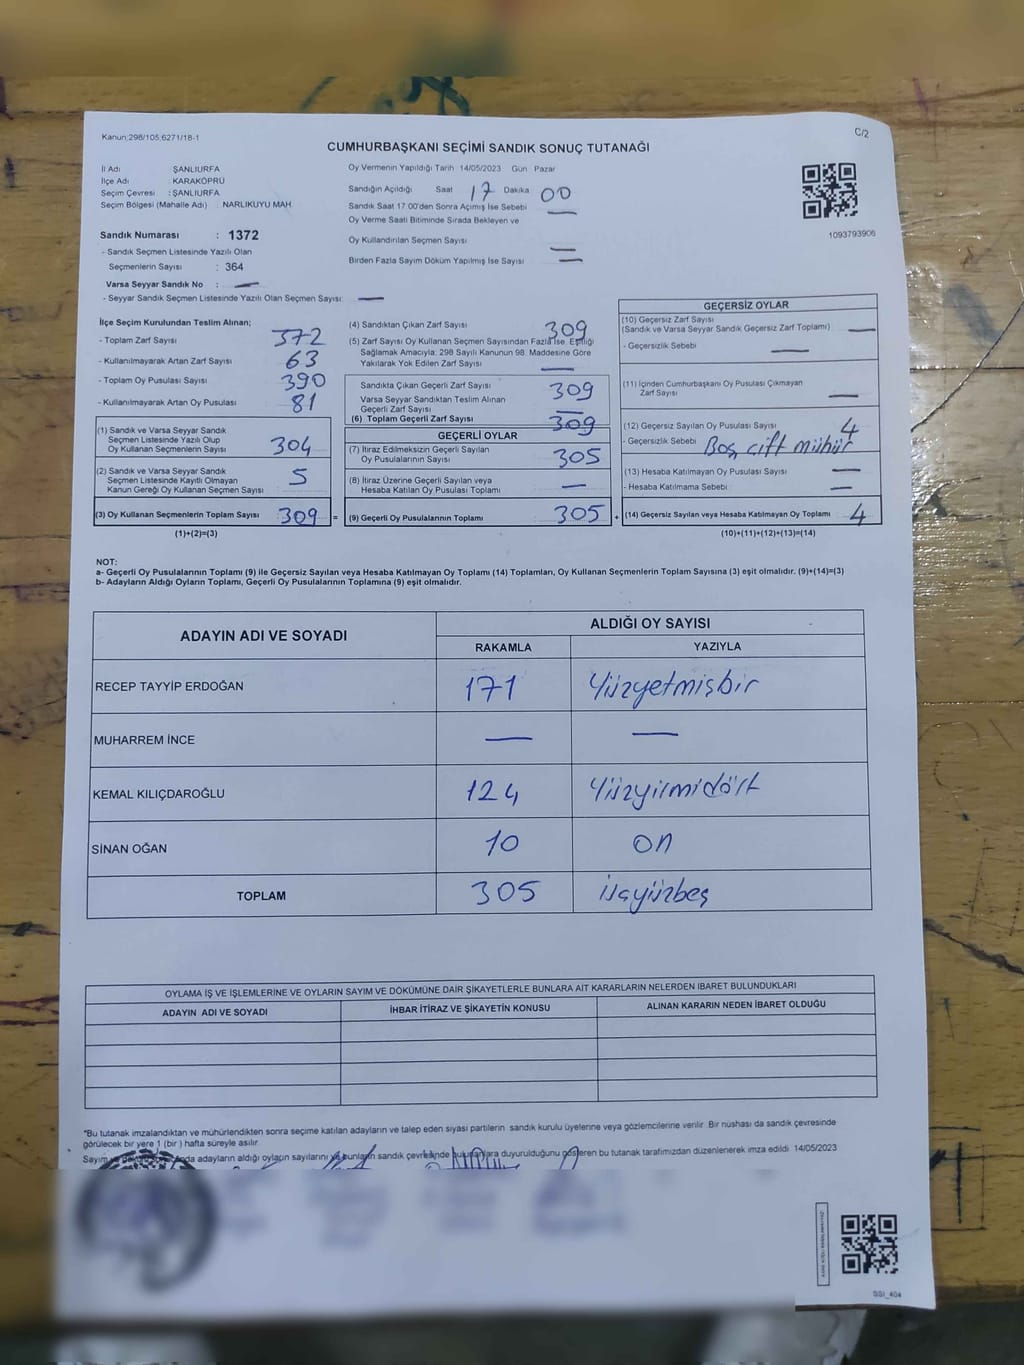 Kanun:298/105;6271/18-1
C/2
CUMHURBAŞKANI SEÇİMİ SANDIK SONUÇ TUTANAĞI
İl Adı ŞANLIURFA
İlçe Adı KARAKÖPRÜ
Seçim Çevresi : ŞANLIURFA
Seçim Bölgesi (Mahalle Adı) : NARLIKUYU MAH.
Sandık Numarası : 1372
- Sandık Seçmen Listesinde Yazılı Olan
Seçmenlerin Sayısı : 364
Varsa Seyyar Sandık No : —
- Seyyar Sandık Seçmen Listesinde Yazılı Olan Seçmen Sayısı: —
Oy Vermenin Yapıldığı Tarih 14/05/2023 Gün Pazar
Sandığın Açıldığı Saat 17 Dakika 00
Sandık Saat 17.00'den Sonra Açımış İse Sebebi —
Oy Verme Saati Bitiminde Sırada Bekleyen ve
Oy Kullandırılan Seçmen Sayısı —
Birden Fazla Sayım Döküm Yapılmış İse Sayısı —
1093793906
İlçe Seçim Kurulundan Teslim Alınan;
- Toplam Zarf Sayısı 372
- Kullanılmayarak Artan Zarf Sayısı 63
- Toplam Oy Pusulası Sayısı 390
- Kullanılmayarak Artan Oy Pusulası 81
(1) Sandık ve Varsa Seyyar Sandık
Seçmen Listesinde Yazılı Olup
Oy Kullanan Seçmenlerin Sayısı 304
(2) Sandık ve Varsa Seyyar Sandık
Seçmen Listesinde Kayıtlı Olmayan
Kanun Gereği Oy Kullanan Seçmen Sayısı 5
(3) Oy Kullanan Seçmenlerin Toplam Sayısı 309 =
(1)+(2)=(3)
(4) Sandıktan Çıkan Zarf Sayısı 309
(5) Zarf Sayısı Oy Kullanan Seçmen Sayısından Fazla İse, Eşitliği
Sağlamak Amacıyla, 298 Sayılı Kanunun 98. Maddesine Göre
Yakılarak Yok Edilen Zarf Sayısı —
Sandıkta Çıkan Geçerli Zarf Sayısı 309
Varsa Seyyar Sandıktan Teslim Alınan
Geçerli Zarf Sayısı —
(6) Toplam Geçerli Zarf Sayısı 309
GEÇERLİ OYLAR
(7) İtiraz Edilmeksizin Geçerli Sayılan
Oy Pusulalarının Sayısı 305
(8) İtiraz Üzerine Geçerli Sayılan veya
Hesaba Katılan Oy Pusulası Toplamı —
(9) Geçerli Oy Pusulalarının Toplamı 305 +
GEÇERSİZ OYLAR
(10) Geçersiz Zarf Sayısı
(Sandık ve Varsa Seyyar Sandık Geçersiz Zarf Toplamı) —
- Geçersizlik Sebebi —
(11) İçinden Cumhurbaşkanı Oy Pusulası Çıkmayan
Zarf Sayısı —
(12) Geçersiz Sayılan Oy Pusulası Sayısı 4
- Geçersizlik Sebebi Boş, çift mühür
(13) Hesaba Katılmayan Oy Pusulası Sayısı —
- Hesaba Katılmama Sebebi —
(14) Geçersiz Sayılan veya Hesaba Katılmayan Oy Toplamı 4
(10)+(11)+(12)+(13)=(14)
NOT:
a- Geçerli Oy Pusulalarının Toplamı (9) ile Geçersiz Sayılan veya Hesaba Katılmayan Oy Toplamı (14) Toplamları, Oy Kullanan Seçmenlerin Toplam Sayısına (3) eşit olmalıdır. (9)+(14)=(3)
b- Adayların Aldığı Oyların Toplamı, Geçerli Oy Pusulalarının Toplamına (9) eşit olmalıdır.
ADAYIN ADI VE SOYADI ALDIĞI OY SAYISI
RAKAMLA YAZIYLA
RECEP TAYYİP ERDOĞAN 171 Yüzyetmişbir
MUHARREM İNCE — —
KEMAL KILIÇDAROĞLU 124 Yüzyirmidört
SİNAN OĞAN 10 on
TOPLAM 305 üçyüzbeş
OYLAMA İŞ VE İŞLEMLERİNE VE OYLARIN SAYIM VE DÖKÜMÜNE DAİR ŞİKAYETLERLE BUNLARA AİT KARARLARIN NELERDEN İBARET BULUNDUKLARI
ADAYIN ADI VE SOYADI İHBAR İTİRAZ VE ŞİKAYETİN KONUSU ALINAN KARARIN NEDEN İBARET OLDUĞU
*Bu tutanak imzalandıktan ve mühürlendikten sonra seçime katılan adayların ve talep eden siyasi partilerin sandık kurulu üyelerine veya gözlemcilerine verilir. Bir nüshası da sandık çevresinde
görülecek bir yere 1 (bir ) hafta süreyle asılır.
Sayım adayların aldığı oyların sayılarını bunların sandık çevresinde bulunanlara duyurulduğunu gösteren bu tutanak tarafımızdan düzenlenerek imza edildi. 14/05/2023
SSI_404